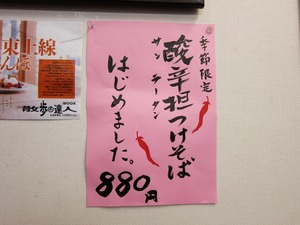 季節限定
酸辛担つけそば
サンラータン
はじめました。
880円
東上線
散歩の達人
MOOK